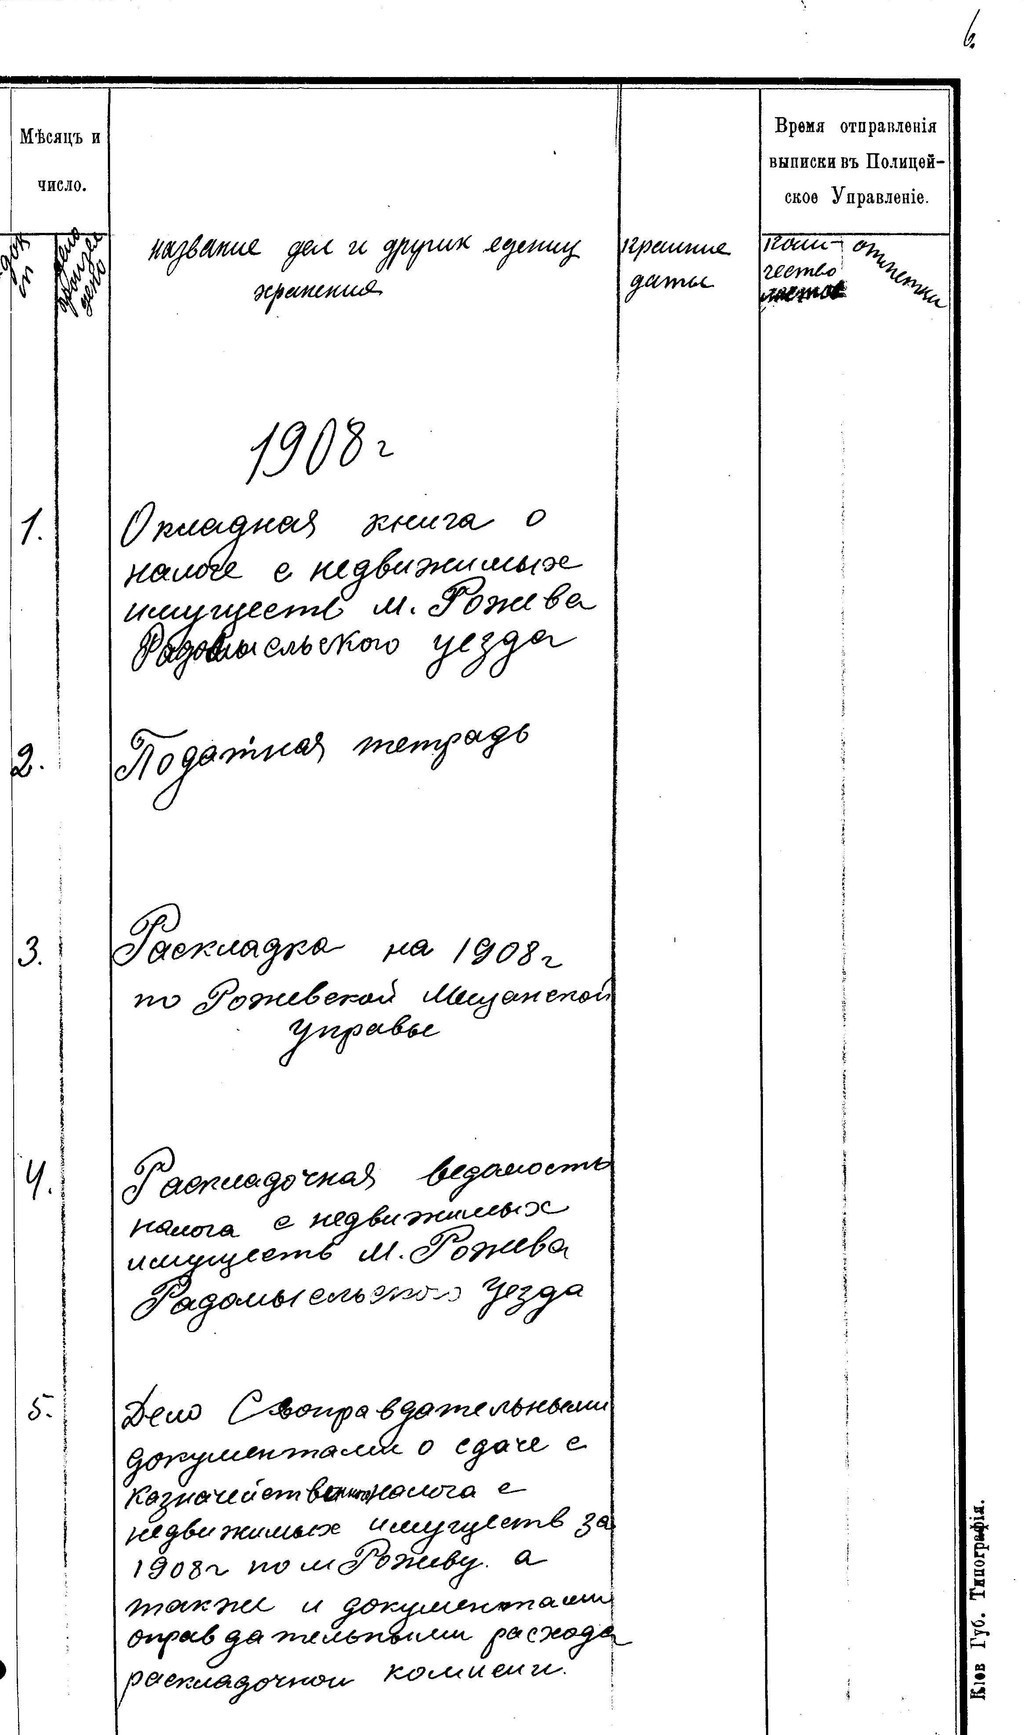 6.
Мѣсяцъ и
число.
Время отправленія
выписки въ Полицей-
ское Управленіе.
название дел и других единиц
хранения
крайние
даты
коли-
чество
листов
отметки
1908 г
1. Окладная книга о
налоге с недвижимых
имуществ м. Рожева
Радомысльского уезда
2. Податная тетрадь
3. Раскладка на 1908 г
по Рожевской Мещанской
управы
4. Раскладочная ведомость
налога с недвижимых
имуществ М. Рожева
Радомысельского Уезда
5. Дело С оправдательными
документами о сдаче с
казначейство налога с
недвижимых имуществ за
1908 г по м Рожеву. а
также и документами
оправдательными расхода
раскладочной комисии.
Кіев Губ. Типографія.